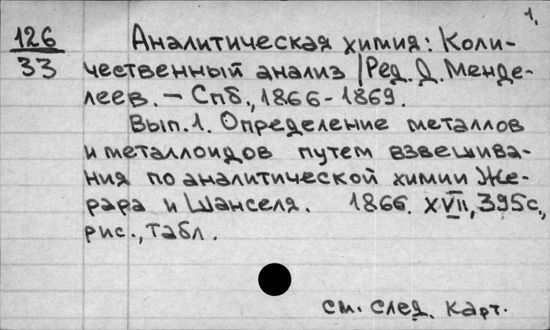 1.
126
33
Аналитическая химия: Коли-
чественный анализ / Ред. Д. Менде-
леев. – Спб., 1866-1869.
Вып. 1. Определение металлов
и металлоидов путем взвешива-
ния по аналитической химии Же-
рара и Шанселя. 1866. XVII, 395с.,
рис., табл.
см. след. карт.